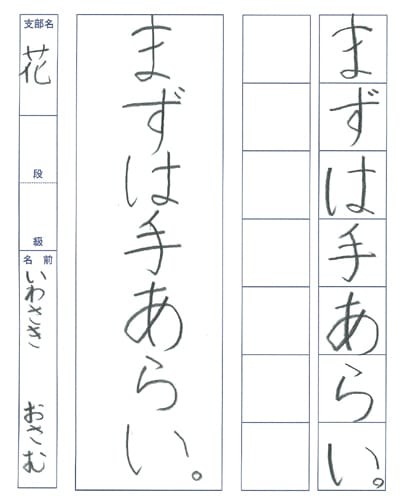 まずは手あらい。
まずは手あらい。
支部名
花
段
級
名前
いわさき おさむ